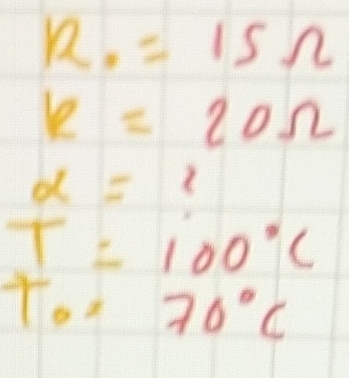 R₀ = 15 Ω
R = 20 Ω
α = ?
T = 100°C
T₀ = 70°C